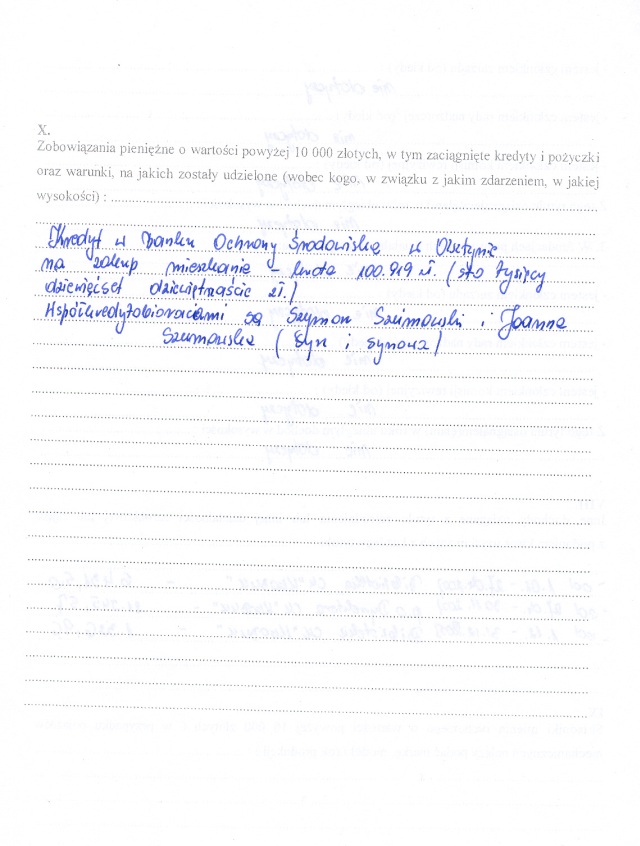 X.
Zobowiązania pieniężne o wartości powyżej 10 000 złotych, w tym zaciągnięte kredyty i pożyczki
oraz warunki, na jakich zostały udzielone (wobec kogo, w związku z jakim zdarzeniem, w jakiej
wysokości) :
Kredyt w Banku Ochrony Środowiska w Olsztynie
na zakup mieszkania – kwota 100.919 zł. (sto tysięcy
dziewięćset dziewiętnaście zł.)
Współkredytobiorcami są Szymon Szumowski i Joanna
Szumowska (syn i synowa)